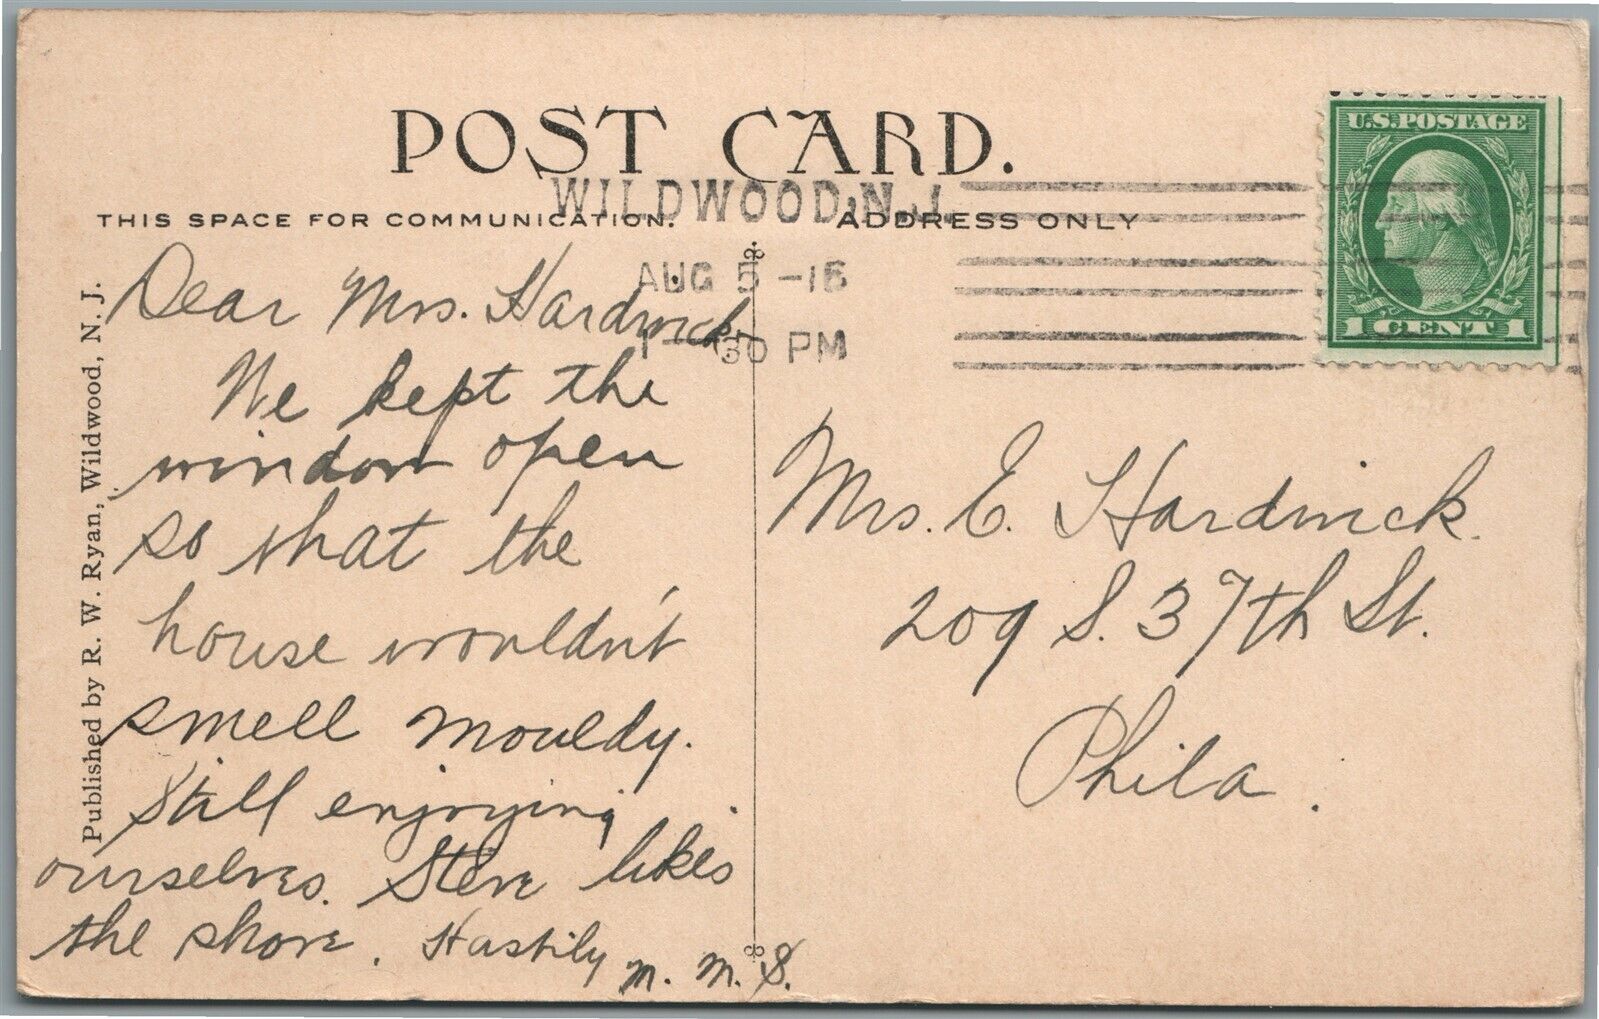 POST CARD.
WILDWOOD, N.J.
THIS SPACE FOR COMMUNICATION.
ADDRESS ONLY
AUG 5 -16
1 30 PM
U.S. POSTAGE
1 CENT 1
Published by R. W. Ryan, Wildwood, N. J.
Dear Mrs. Hardwick
We kept the
window open
so that the
house wouldn't
smell mouldy.
Still enjoying
ourselves. Steve likes
the shore. Hastily
M. M. S.
Mrs. E. Hardwick.
209 S. 37th St.
Phila.